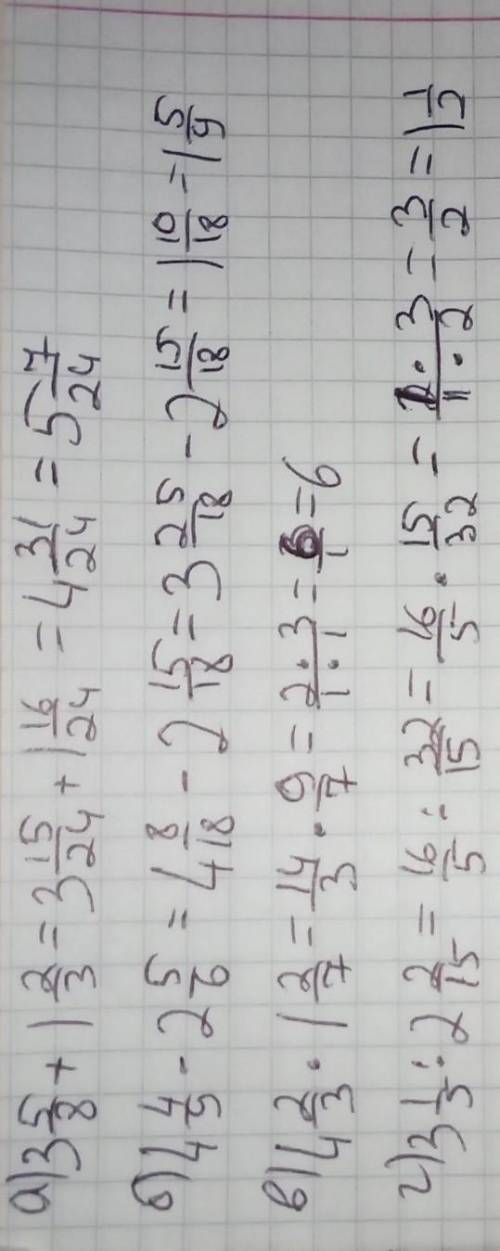 а) 3 5/8 + 1 2/3 = 3 15/24 + 1 16/24 = 4 31/24 = 5 7/24
б) 4 4/9 - 2 5/6 = 4 8/18 - 2 15/18 = 3 25/18 - 2 15/18 = 1 10/18 = 1 5/9
в) 4 2/3 · 1 2/7 = 14/3 · 9/7 = 2·3/1·1 = 6/1 = 6
г) 3 1/5 : 2 2/15 = 16/5 : 32/15 = 16/5 · 15/32 = 1·3/1·2 = 3/2 = 1 1/2